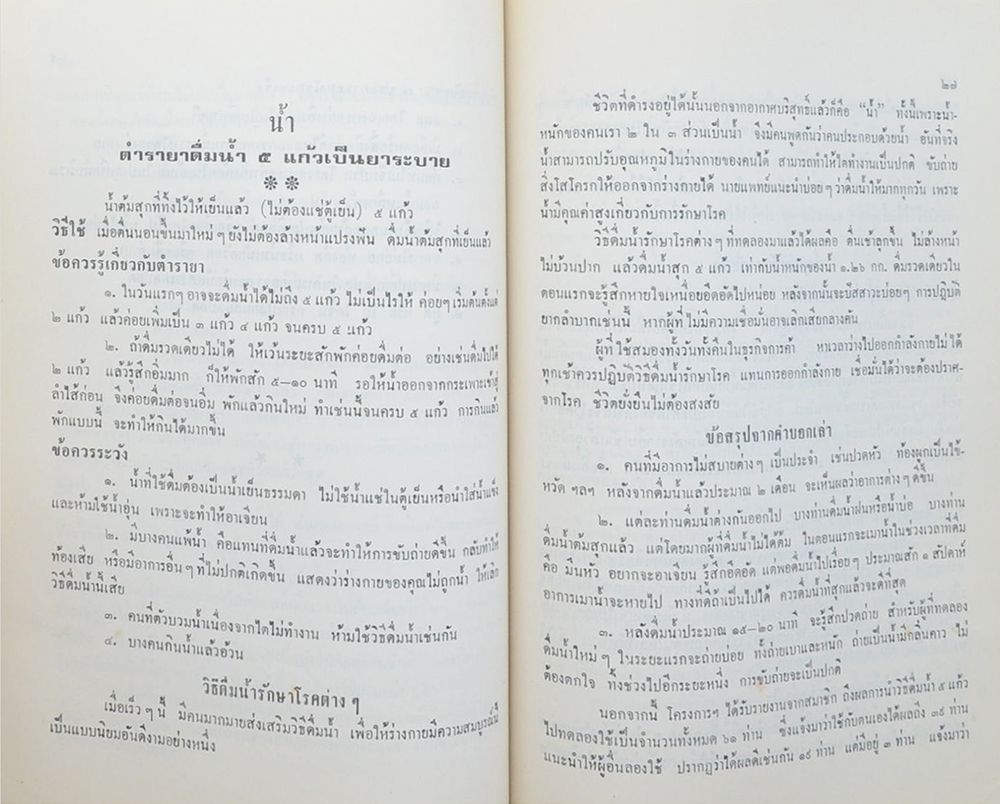 น้ำ
ตำรายาดื่มน้ำ ๕ แก้วเป็นยาระบาย
* *
น้ำต้มสุกที่ทิ้งไว้ให้เย็นแล้ว (ไม่ต้องแช่ตู้เย็น) ๕ แก้ว
วิธีใช้ เมื่อตื่นนอนขึ้นมาใหม่ๆ ยังไม่ต้องล้างหน้าแปรงฟัน ดื่มน้ำต้มสุกที่เย็นแล้ว
ข้อควรรู้เกี่ยวกับตำรายา
๑. ในวันแรกๆ อาจจะดื่มน้ำได้ไม่ถึง ๕ แก้ว ไม่เป็นไรให้ ค่อยๆ เริ่มต้นตั้งแต่
๒ แก้ว แล้วค่อยเพิ่มเป็น ๓ แก้ว ๔ แก้ว จนครบ ๕ แก้ว
๒. ถ้าดื่มรวดเดียวไม่ได้ ให้เว้นระยะสักพักค่อยดื่มต่อ อย่างเช่นดื่มไปได้
๒ แก้ว แล้วรู้สึกอิ่มมาก ก็ให้พักสัก ๕–๑๐ นาที รอให้น้ำออกจากกระเพาะเข้าสู่
ลำไส้ก่อน จึงค่อยดื่มต่อจนอิ่ม พักแล้วกินใหม่ ทำเช่นนี้จนครบ ๕ แก้ว การกินแล้ว
พักแบบนี้ จะทำให้กินได้มากขึ้น
ข้อควรระวัง
๑. น้ำที่ใช้ดื่มต้องเป็นน้ำเย็นธรรมดา ไม่ใช้น้ำแช่ในตู้เย็นหรือนำใส่น้ำแข็ง
และห้ามใช้น้ำอุ่น เพราะจะทำให้อาเจียน
๒. มีบางคนแพ้น้ำ คือแทนที่ดื่มน้ำแล้วจะทำให้การขับถ่ายดีขึ้น กลับทำให้
ท้องเสีย หรือมีอาการอื่นๆ ที่ไม่ปกติเกิดขึ้น แสดงว่าร่างกายของคุณไม่ถูกน้ำ ให้เลิก
วิธีดื่มน้ำนี้เสีย
๓. คนที่ตัวบวมน้ำเนื่องจากไตไม่ทำงาน ห้ามใช้วิธีดื่มน้ำเช่นกัน
๔. บางคนกินน้ำแล้วอ้วน
วิธีดื่มน้ำรักษาโรคต่าง ๆ
เมื่อเร็วๆ นี้ มีคนมากมายส่งเสริมวิธีดื่มน้ำ เพื่อให้ร่างกายมีความสมบูรณ์นี้
เป็นแบบนิยมอันดีงามอย่างหนึ่ง
๒๗
ชีวิตที่ดำรงอยู่ได้นั้นนอกจากอากาศบริสุทธิ์แล้วก็คือ “น้ำ” ทั้งนี้เพราะน้ำ-
หนักของคนเรา ๒ ใน ๓ ส่วนเป็นน้ำ จึงมีคนพูดกันว่าคนประกอบด้วยน้ำ อันที่จริง
น้ำสามารถปรับอุณหภูมิในร่างกายของคนได้ สามารถทำให้ไตทำงานเป็นปกติ ขับถ่าย
สิ่งโสโครกให้ออกจากร่างกายได้ นายแพทย์แนะนำบ่อยๆ ว่าดื่มน้ำให้มากทุกวัน เพราะ
น้ำมีคุณค่าสูงเกี่ยวกับการรักษาโรค
วิธีดื่มน้ำรักษาโรคต่างๆ ที่ทดลองมาแล้วได้ผลคือ ตื่นเช้าลุกขึ้น ไม่ล้างหน้า
ไม่บ้วนปาก แล้วดื่มน้ำสุก ๕ แก้ว เท่ากับน้ำหนักของน้ำ ๑.๒๖ กก. ดื่มรวดเดียวใน
ตอนแรกจะรู้สึกหายใจเหนื่อยอึดอัดไปหน่อย หลังจากนั้นจะปัสสาวะบ่อยๆ การปฏิบัติ
ยากลำบากเช่นนี้ หากผู้ที่ไม่มีความเชื่อมั่นอาจเลิกเสียกลางคัน
ผู้ที่ใช้สมองทั้งวันทั้งคืนในธุรกิจการค้า หาเวลาว่างไปออกกำลังกายไม่ได้
ทุกเช้าควรปฏิบัติวิธีดื่มน้ำรักษาโรค แทนการออกกำลังกาย เชื่อมั่นได้ว่าจะต้องปราศ-
จากโรค ชีวิตยั่งยืนไม่ต้องสงสัย
ข้อสรุปจากคำบอกเล่า
๑. คนที่มีอาการไม่สบายต่างๆ เป็นประจำ เช่นปวดหัว ท้องผูกเป็นไข้-
หวัด ฯลฯ หลังจากดื่มน้ำแล้วประมาณ ๒ เดือน จะเห็นผลว่าอาการต่างๆ ดีขึ้น
๒. แต่ละท่านดื่มน้ำต่างกันออกไป บางท่านดื่มน้ำฝนหรือน้ำบ่อ บางท่าน
ดื่มน้ำต้มสุกแล้ว แต่โดยมากผู้ที่ดื่มน้ำไม่ได้ต้ม ในตอนแรกจะเมาน้ำในช่วงเวลาที่ดื่ม
คือ มึนหัว อยากจะอาเจียน รู้สึกอึดอัด แต่พอดื่มน้ำไปเรื่อยๆ ประมาณสัก ๑ สัปดาห์
อาการเมาน้ำจะหายไป ทางที่ดีถ้าเป็นไปได้ ควรดื่มน้ำที่สุกแล้วจะดีที่สุด
๓. หลังดื่มน้ำประมาณ ๑๕–๒๐ นาที จะรู้สึกปวดถ่าย สำหรับผู้ที่ทดลอง
ดื่มน้ำใหม่ๆ ในระยะแรกจะถ่ายบ่อย ทั้งถ่ายเบาและหนัก ถ่ายเป็นน้ำมีกลิ่นคาว ไม่
ต้องตกใจ ทิ้งช่วงไปอีกระยะหนึ่ง การขับถ่ายจะเป็นปกติ
นอกจากนี้ โครงการฯ ได้รับรายงานจากสมาชิก ถึงผลการนำวิธีดื่มน้ำ ๕ แก้ว
ไปทดลองใช้เป็นจำนวนทั้งหมด ๖๑ ท่าน ซึ่งแจ้งมาว่าใช้กับตนเองได้ผลถึง ๓๙ ท่าน
แนะนำให้ผู้อื่นลองใช้ ปรากฏว่าได้ผลดีเช่นกัน ๑๙ ท่าน แต่มีอยู่ ๓ ท่าน แจ้งมาว่า